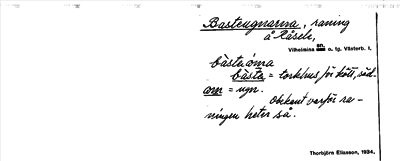 Bastuugnarna, raning
å Råsele,
Vilhelmina sn. o. tg. Västerb. l.
bàstuåᵰna
bàsta = torkhus för kött, säd.
= ugn.
Obekant varför ra-
ningen heter så.
Thorbjörn Eliasson, 1934.